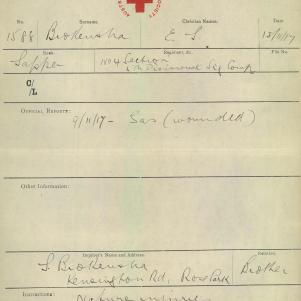 AUST
SOCIETY
No. Surname. Christian Names. Date.
1588 Brokensha E. S. 13/11/17
Rank. Regiment, &c. File No.
Sapper No 4 Section
C/L
OFFICIAL REPORTS:
9/11/17 - Gas (wounded)
Other Information:
Inquirer's Name and Address: Relation.
S. Brokensha Brother
Kensington Rd, Rose Park
Instructions: Nature injury